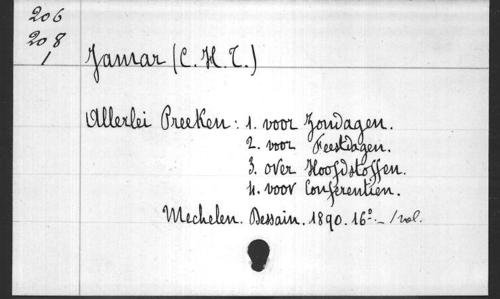 206
208
1
Jamar (C. H. T.)
Allerlei Preeken: 1. voor Zondagen.
2. voor Feestdagen.
3. over Hoofdstoffen.
4. voor Conferentien.
Mechelen. Dessain. 1890. 16º. _ / vol.